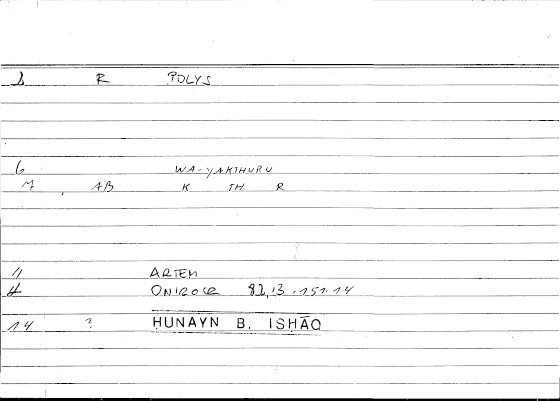 1 R POLYS
6 WA-YAKTHURU
M . AB K TH R
11 ARTEM
ONIROCR 82,13 - 151.14
14 ? ḤUNAYN B. ISḤĀQ